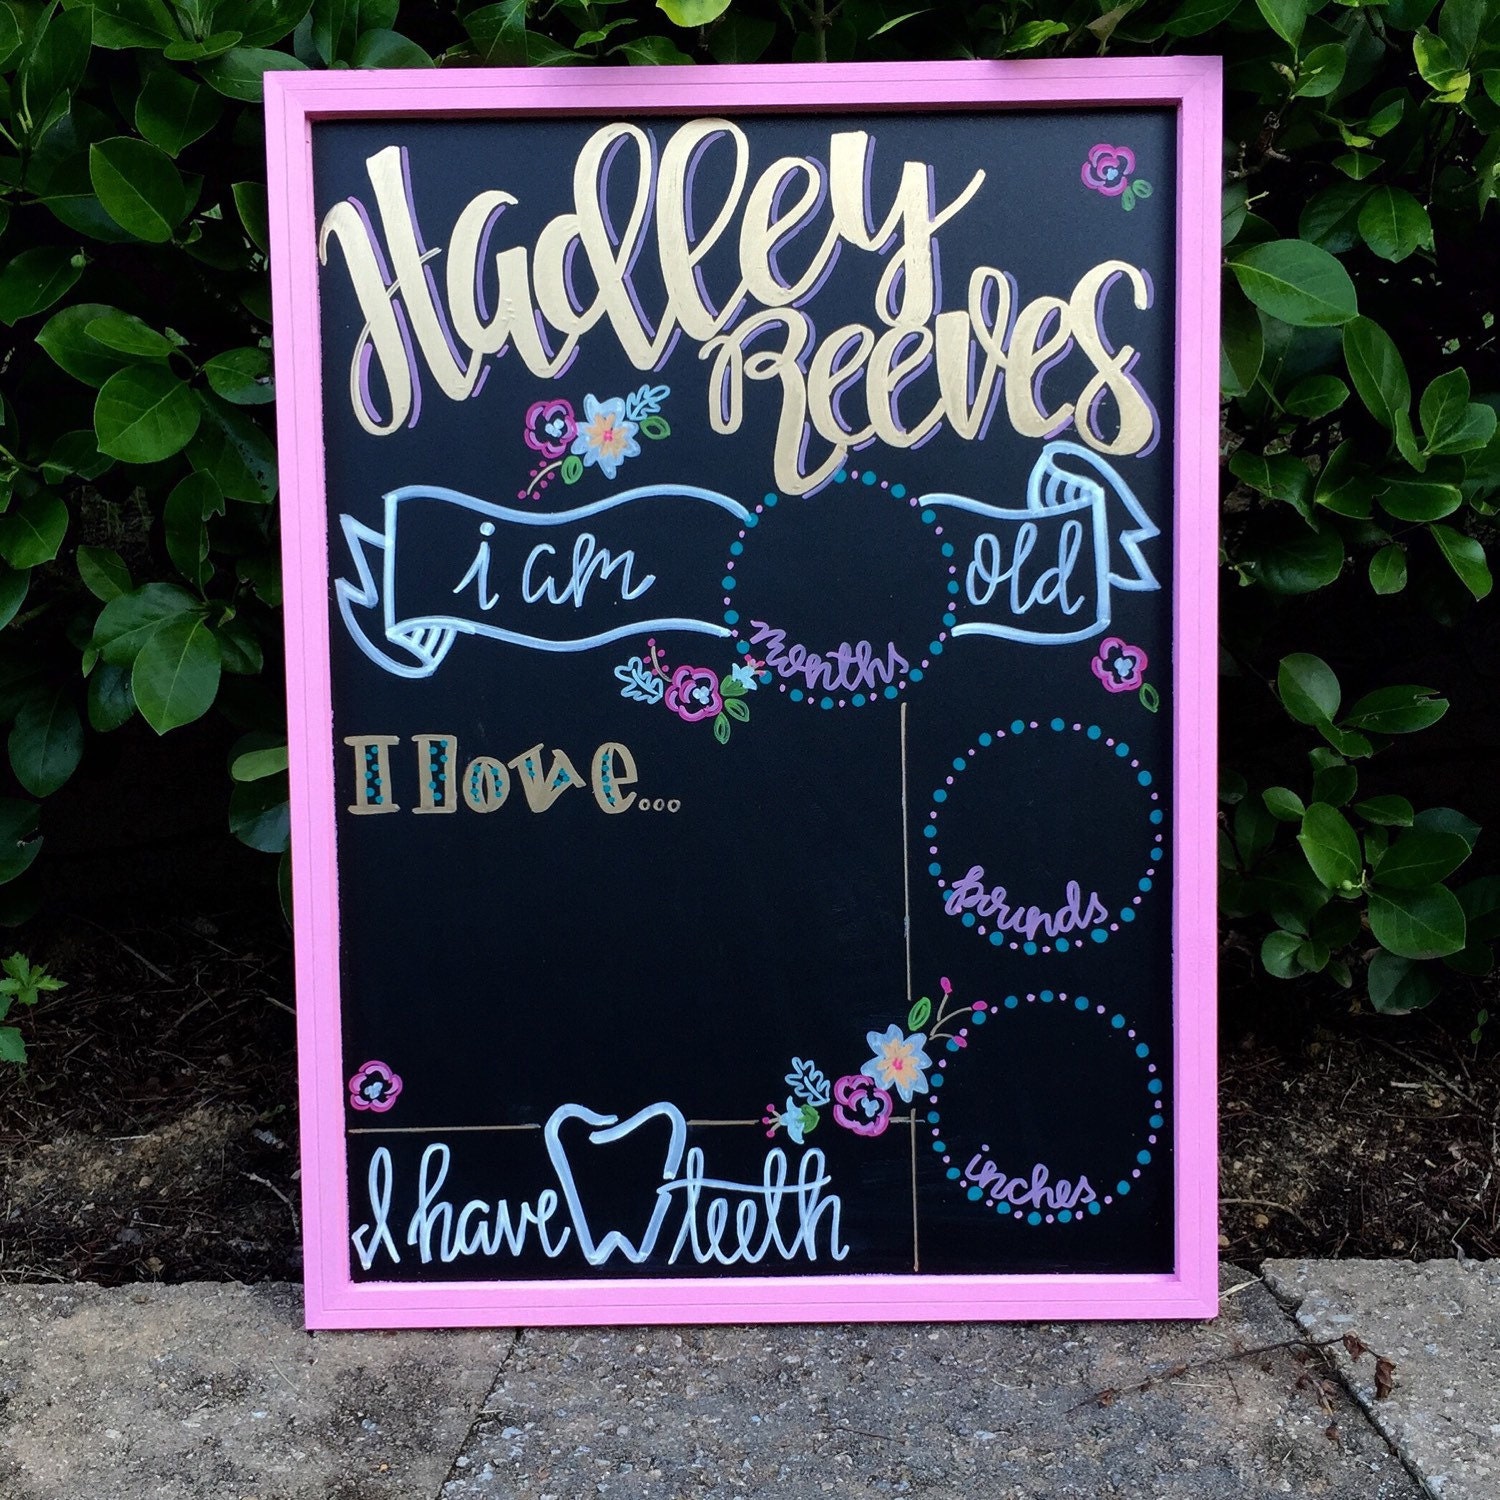 Hadley
Reeves
i am
old
months
I love...
pounds
inches
I have teeth